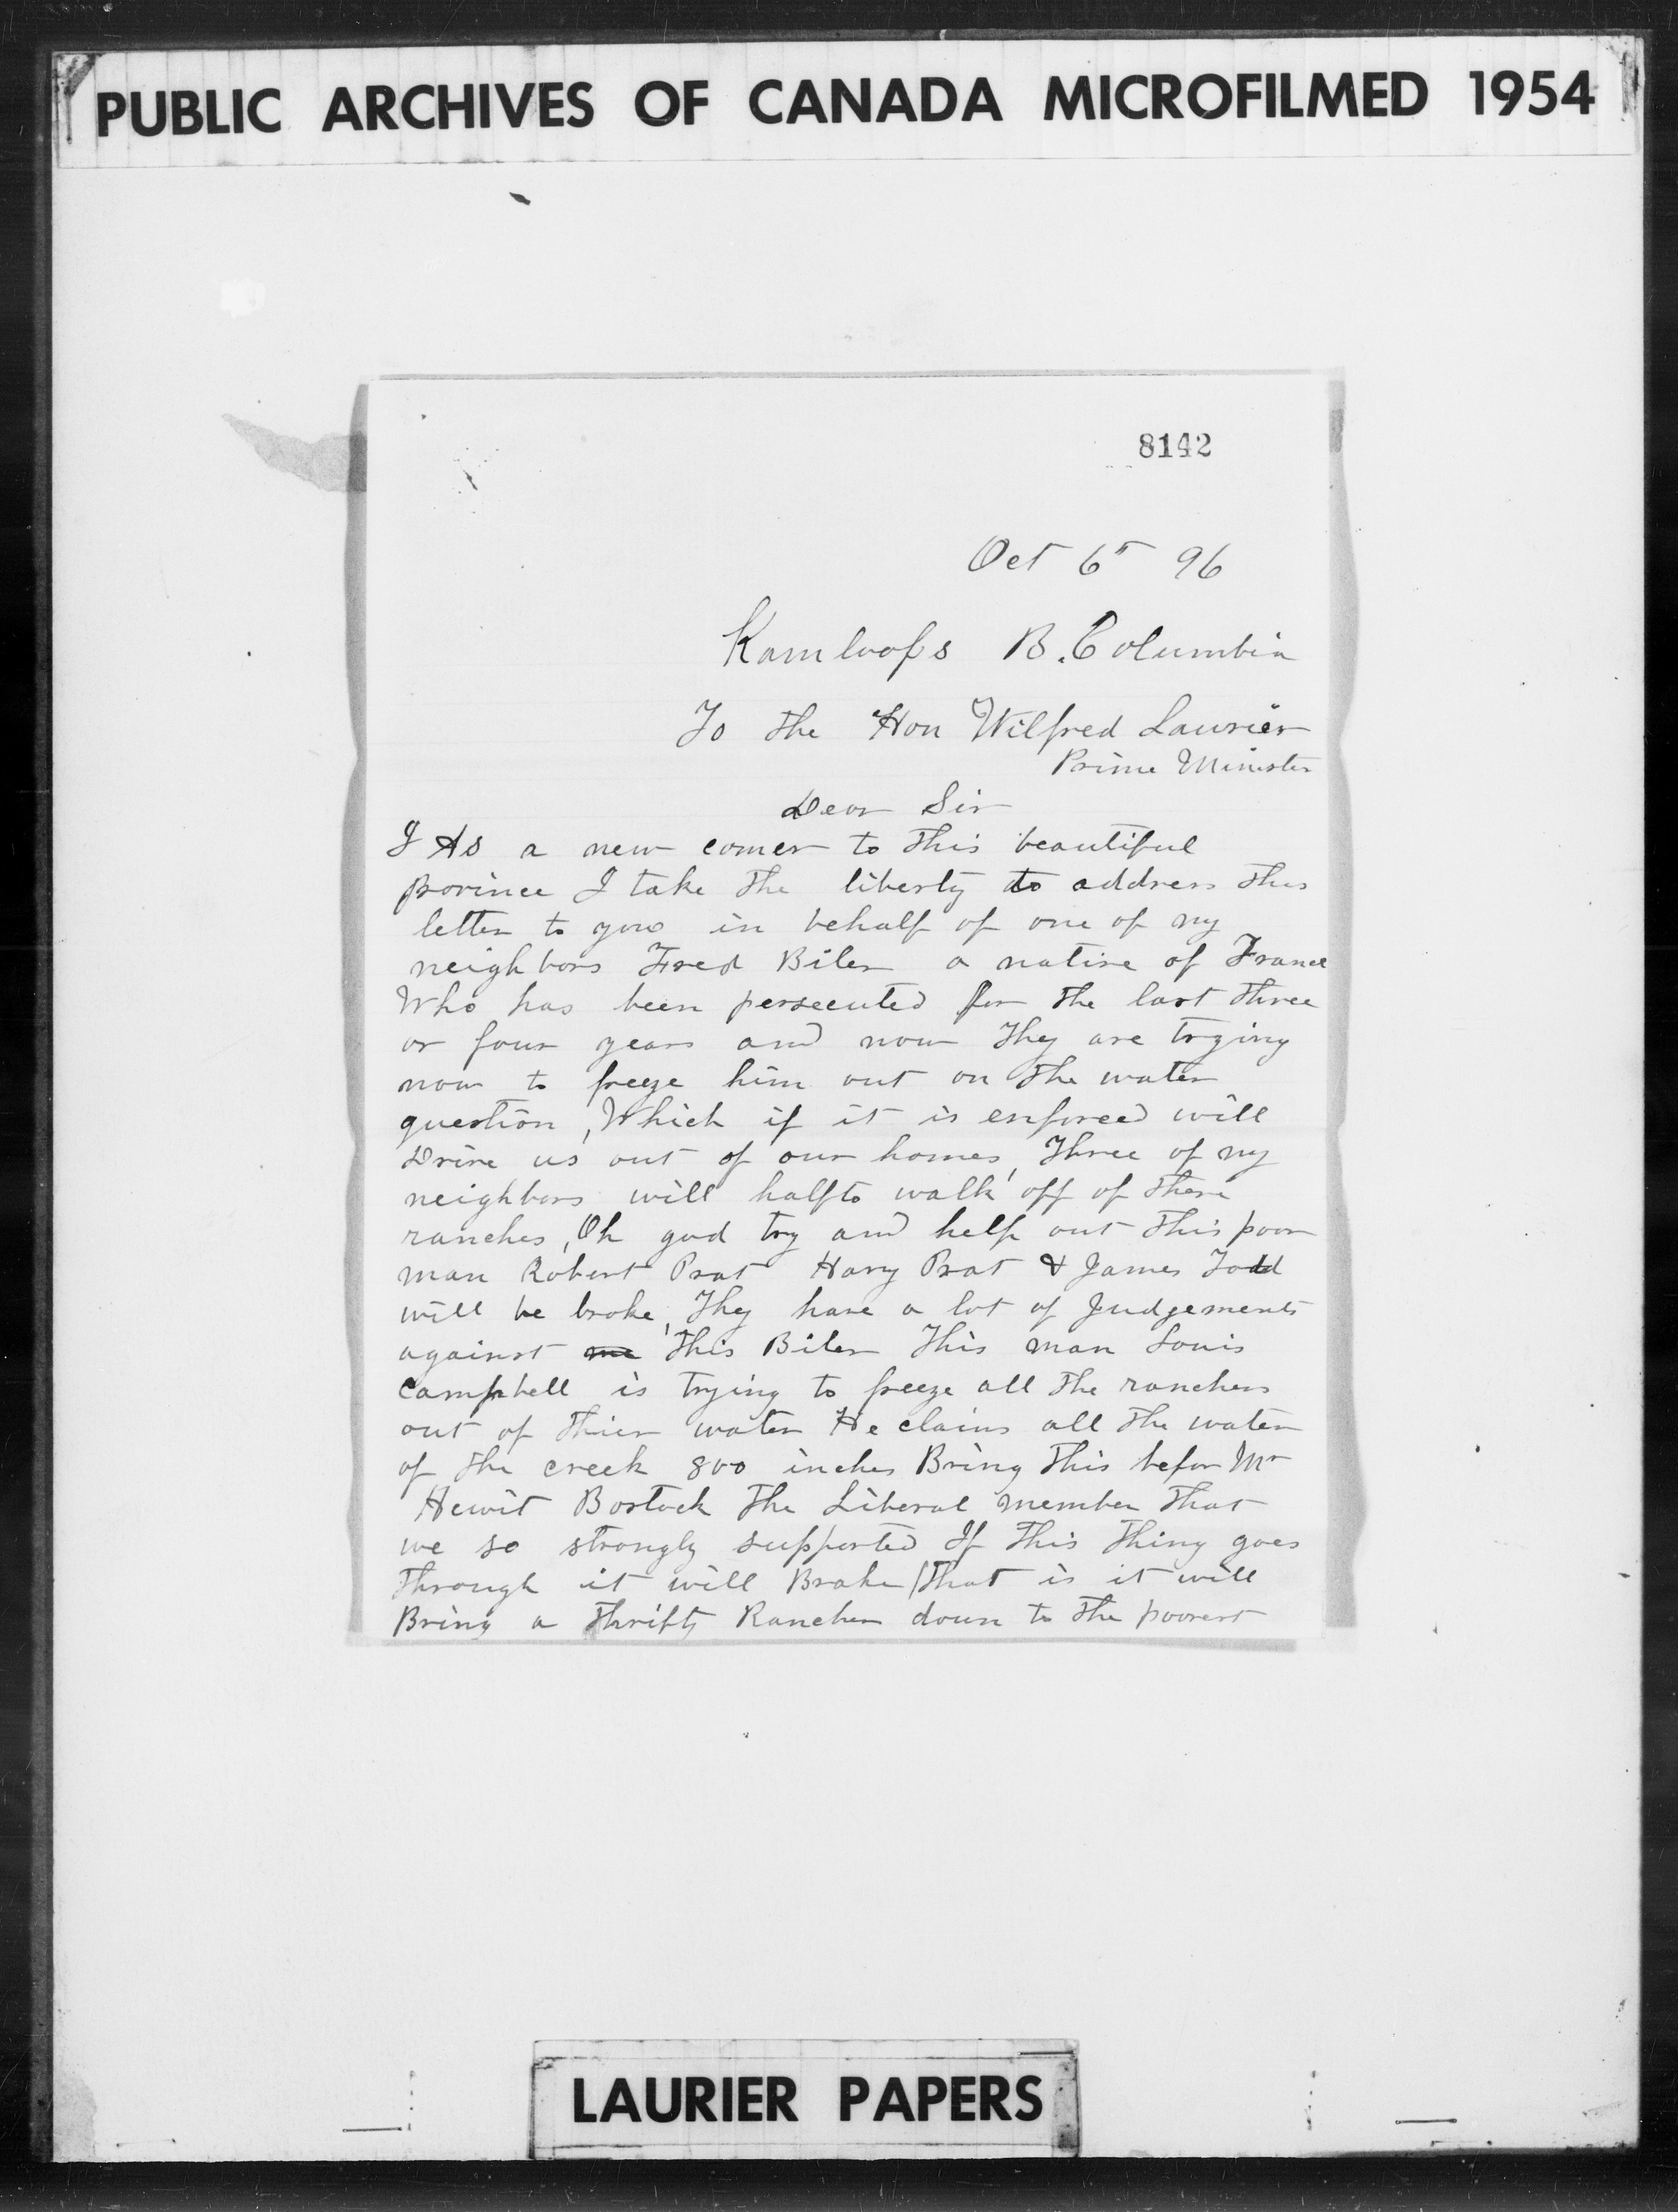 PUBLIC ARCHIVES OF CANADA MICROFILMED 1954
8142
Oct 6th 96
Kamloops B. Columbia
To the Hon Wilfred Laurier
Prime Minister
Dear Sir
I As a new comer to this beautiful
province I take the liberty to address this
letter to you in behalf of one of my
neighbors Fred Biler a native of France
Who has been persecuted for the last three
or four years and now They are trying
now to freeze him out on the water
question, Which if it is enforced will
Drive us out of our homes, Three of my
neighbors will halfto walk off of there
ranches, Oh god try and help out this poor
man Robert Prat Hary Prat & James Todd
will be broke, They have a lot of Judgements
against me this Biler This man Louis
Campbell is trying to freeze all the ranchers
out of thier water He claims all the water
of the creek 800 inches Bring this befor Mr
Hewit Bostock The Liberal member that
we so strongly supported If this thing goes
through it will Brake (that is it will
Bring a thrifty Rancher down to the poorest
LAURIER PAPERS